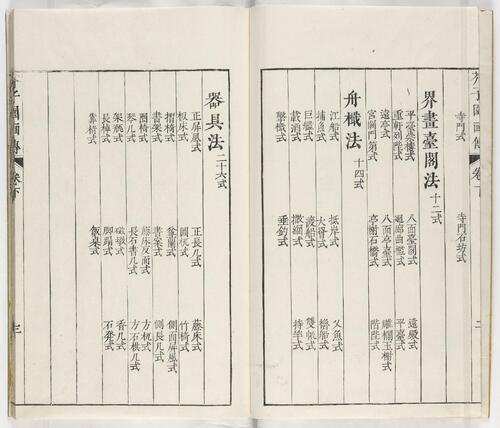 寺門式 寺門石坊式
界畫臺閣法 十二式
八面臺閣式 遠殿式
重軒列陛式 迴廊曲檻式 平臺式
遠亭式 八面亭臺式 雕欄玉榭式
宮闕門第式 亭榭石橋式 階陛式
舟檝法 十四式
江船式 抵岸式 乂魚式
捕魚式 大罾式 櫓船式
巨艦式 渡船式 雙帆式
載酒式 撒網式 持竿式
擊檝式 垂釣式
器具法 二十六式
正屏風式 正長几式 藤床式
板床式 圓杌式 竹椅式
摺椅式 側面屏風式
書架式 書案式 側長几式
圈椅式 藤床反面式 方杌式
琴几式 長石書几式 方石棋几式
架瓶式 磁墩式 香几式
長棹式 脚蹋式 石凳式
靠椅式 飯桌式
芥子園画傳 卷下 三